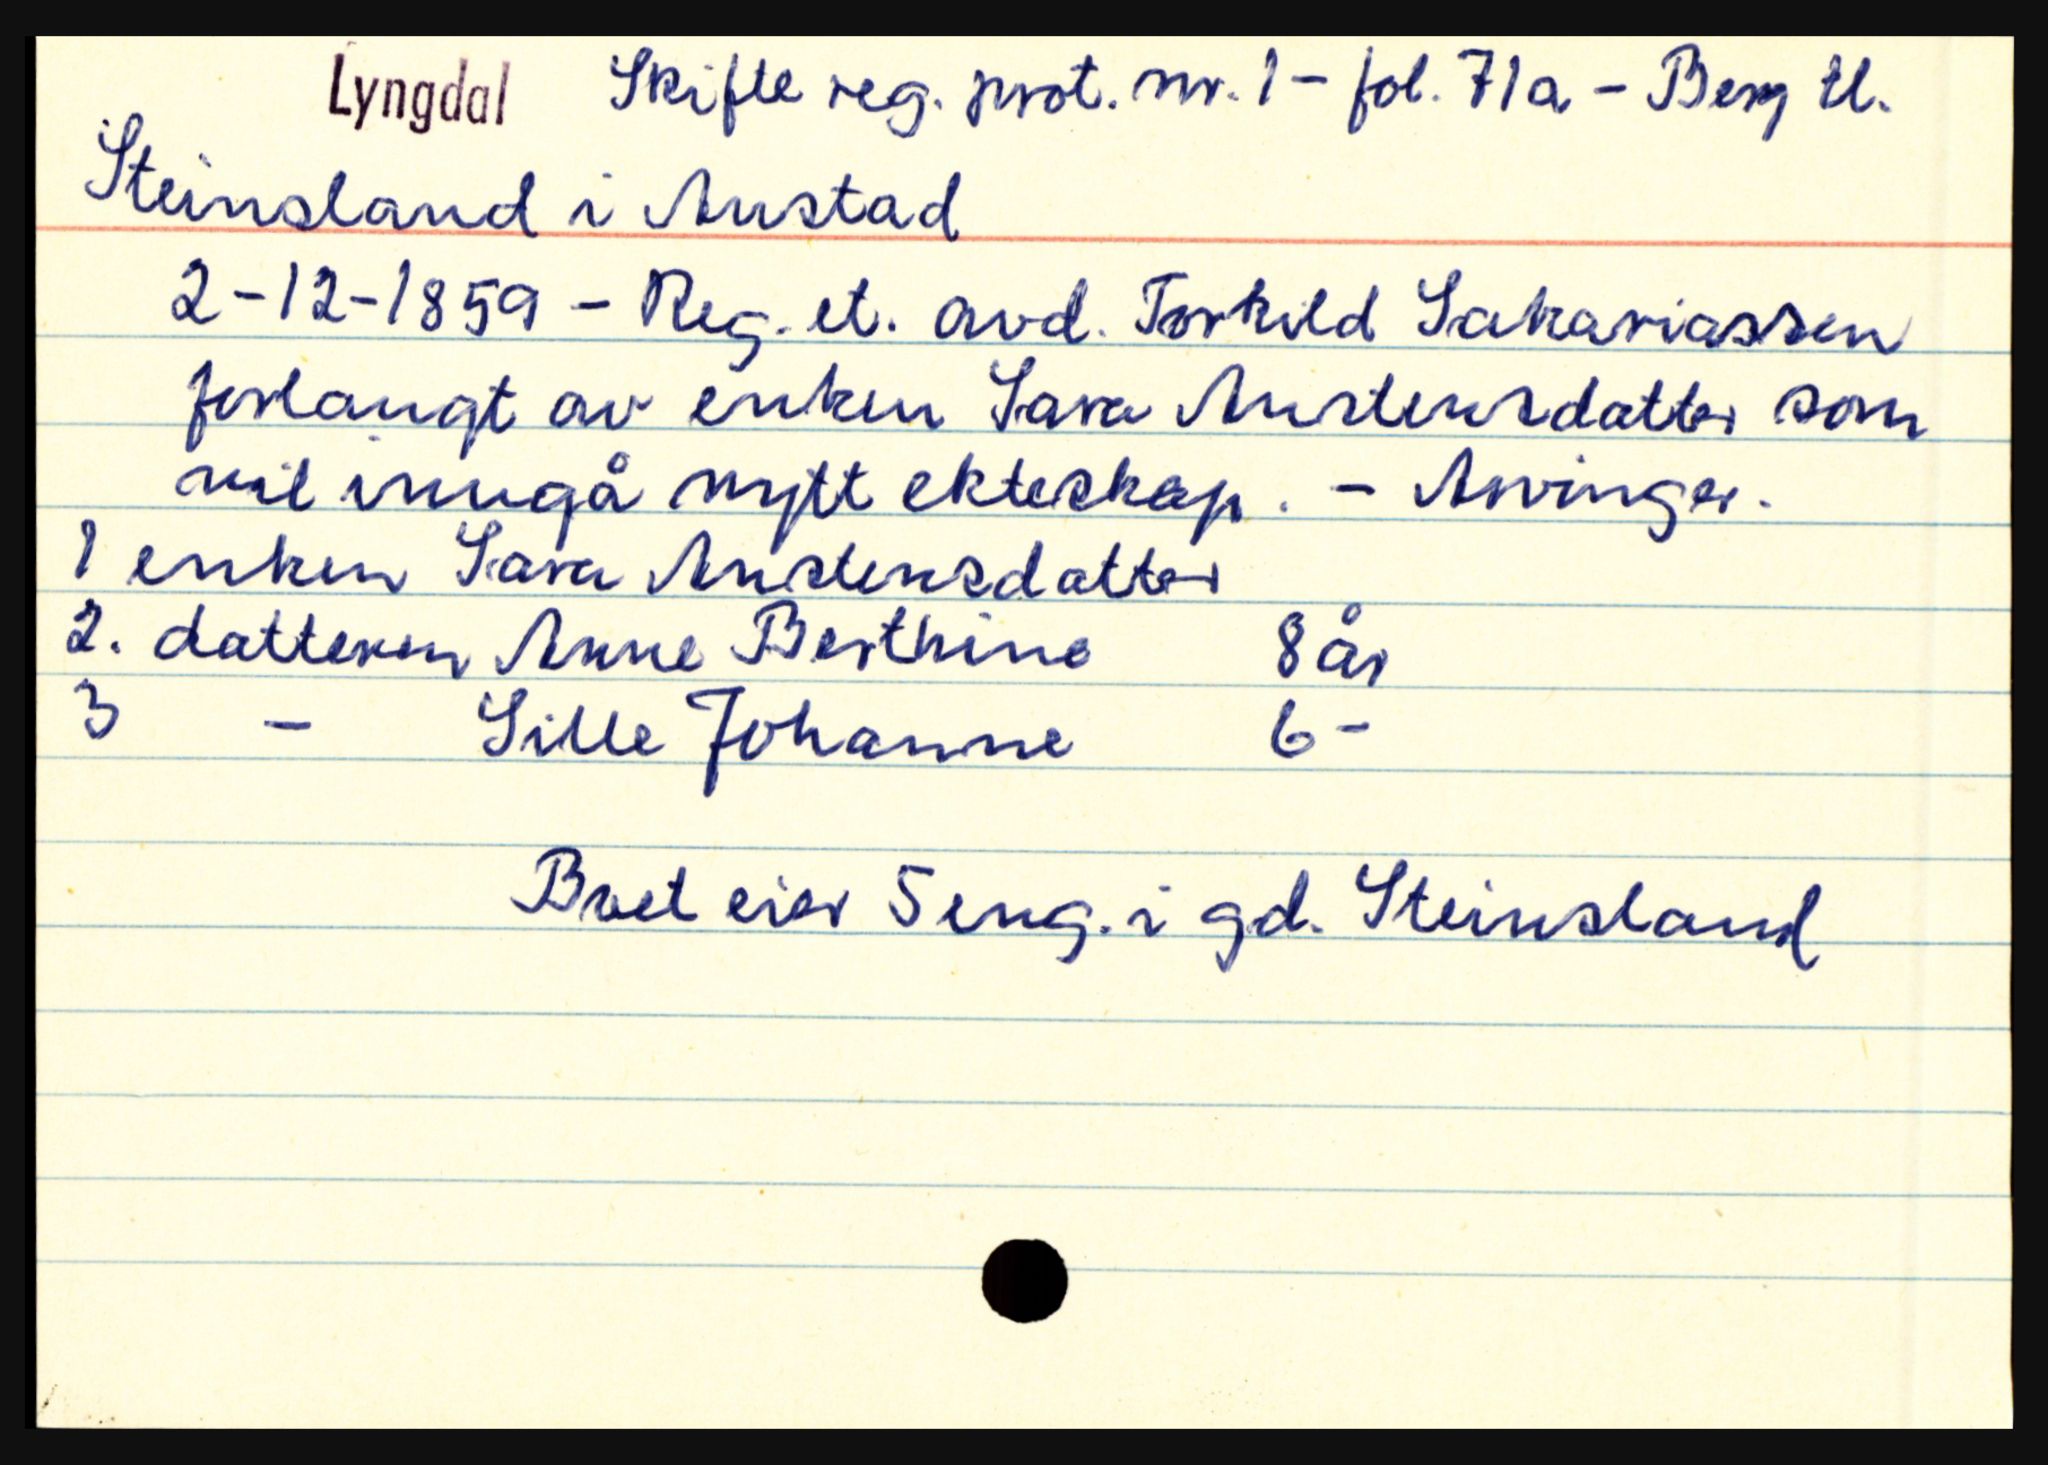 Lyngdal Skifte reg. prot. nr. 1 - fol. 71a - Berg tl.
Steinsland i Austad
2-12-1859 - Reg. et. avd. Torkild Sakariassen
forlangt av enken Sara Austensdatter som
vil inngå nytt ekteskap. - Arvinger.
1 enken Sara Austensdatter
2. datteren Anne Berthine 8 år
3 - Sille Johanne 6 -
Boet eier 5 eng. i gd. Steinsland